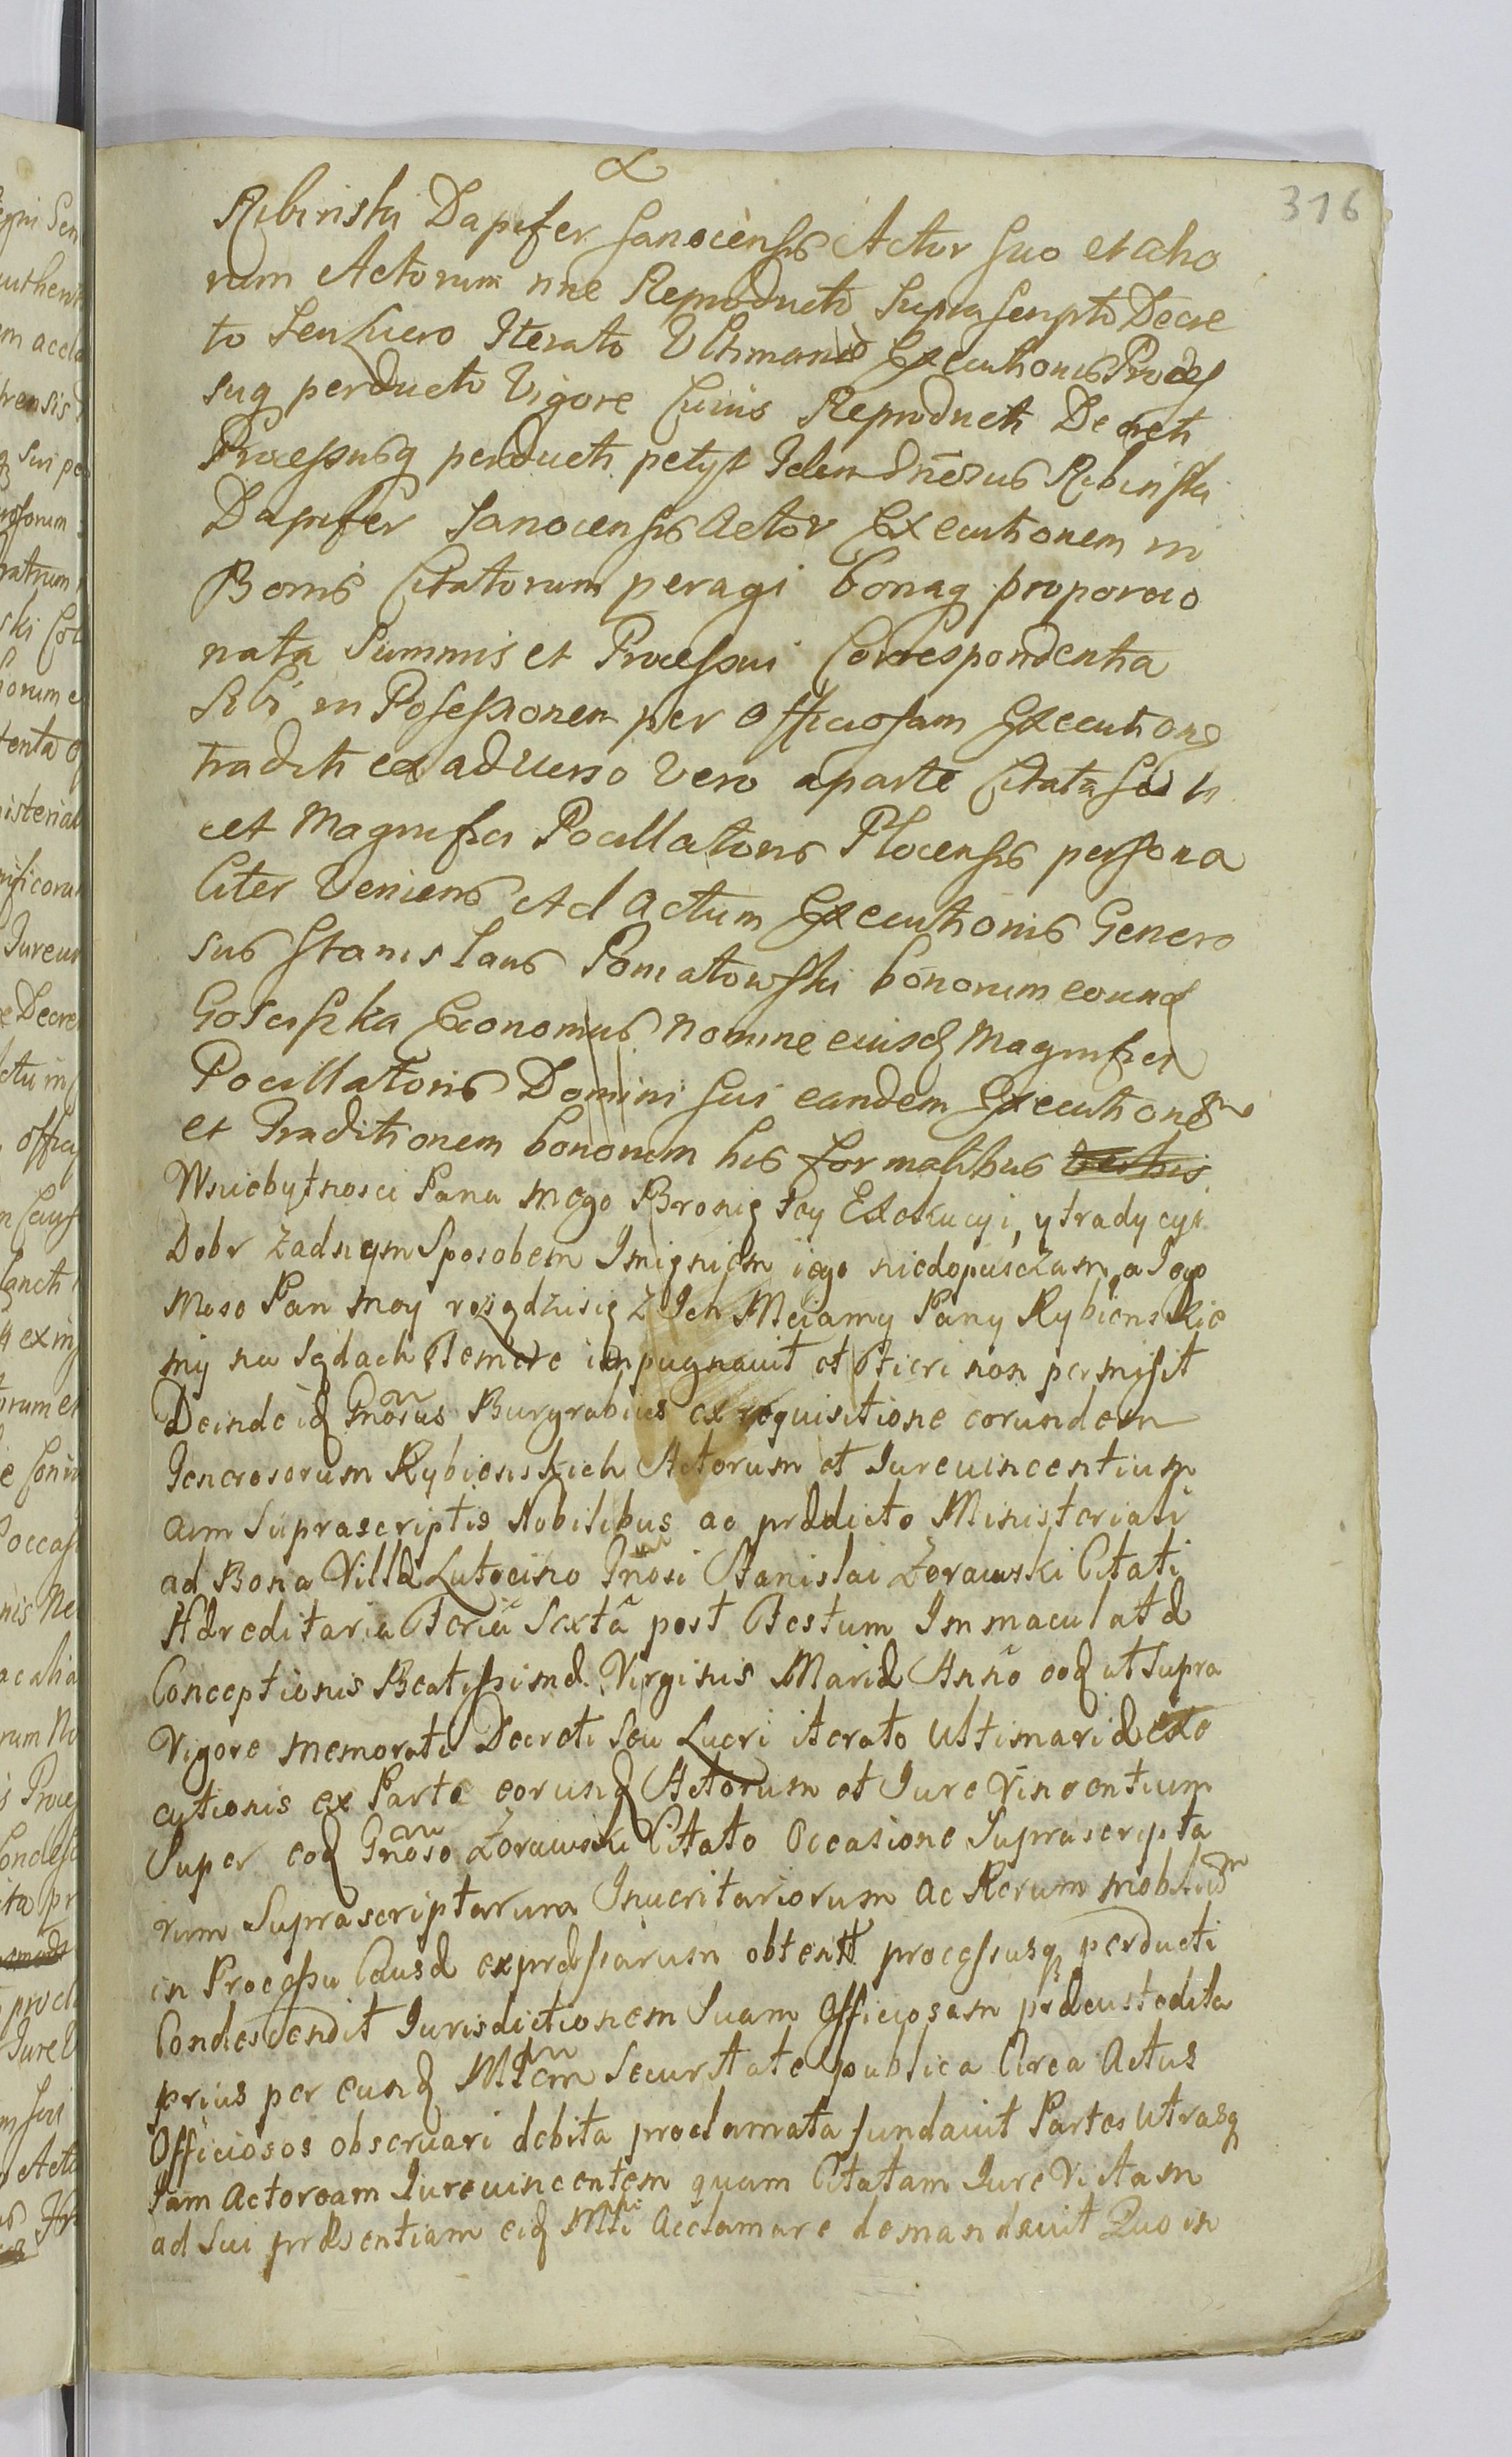 316
Ribinski Dapifer Sanocensis Actor Suo et alio
rum Actorum nne Reproducto Suprascripto Decre
to Seu Lucro Iterato Ultimariæ Executionis Proces
suq perducto Vigore Cuius Reproducti Decreti
Processusq perducti petyt Idem Gnerosus Ribinski
Dapifer Sanocensis Actor Executionem in
Bonis Citatorum peragi bonaq proporcio
nata Summis et Processui Correspondentia
Sibi in Possessionem per Officiosam Executione
traditi ex adverso Vero aparte Citata
et Magnifici Pocillatoris Plocensis persona
liter Veniens Ad Actum Executionis Genero
sus Stanislaus Poniatowski bonorum eorund
Gosciszka Economus Nomine eiusd Magnifici
Pocillatoris Domini Sui eandem Executionem
et Traditionem bonorum his formalibus verbis
Wniebytnosci Pana mego Bronię tey Exekucyi, y tradycyi
Dobr żadnym Sposobem Imięniem iego niedopusczam, a Jego
Mość Pan moy rozsądzisię z Ich Mciamy Pany Rybienskie
my na Sądach Temere impugnavit et Fieri non permisit
Deinde id Gnosus Burgrabius ex requisitione eorundem
Generosorum Rybienskich Actorum et Iurevincentium
cum Suprascriptis Nobilibus ac prædicto Ministeriali
ad Bona Villæ Lutocino Gnosi Stanislai Żorawski Citati
Hæreditaria Feriâ Sextâ post Festum Immaculatæ
Conceptionis Beatissimæ Virginis Mariæ Anno eod ut Supra
Vigore memorati Decreti Seu Lucri iterato Ultimariæ exe
cutionis ex Parte eorund Actorum et Iure Vincentium
Super eod Gnoso Żorawski Citato Occasione Suprascripta
rum Suprascriptarum Inueritariorum ac Rerum mobilium
in Processu Causæ expræssarum obtenti processusq perducti
Condescendit Iurisdictionem Suam Officiosam præcustodita
prius per eund Mtlem Securitate publica Circa Actus
Officiosos observari debita proclamata fundavit Partes Utrasq
Tam Actoream Iurevincentem quam Citatam Iure Victam
ad Sui præsentiam eid Mtli Acclamare demandavit Quo in